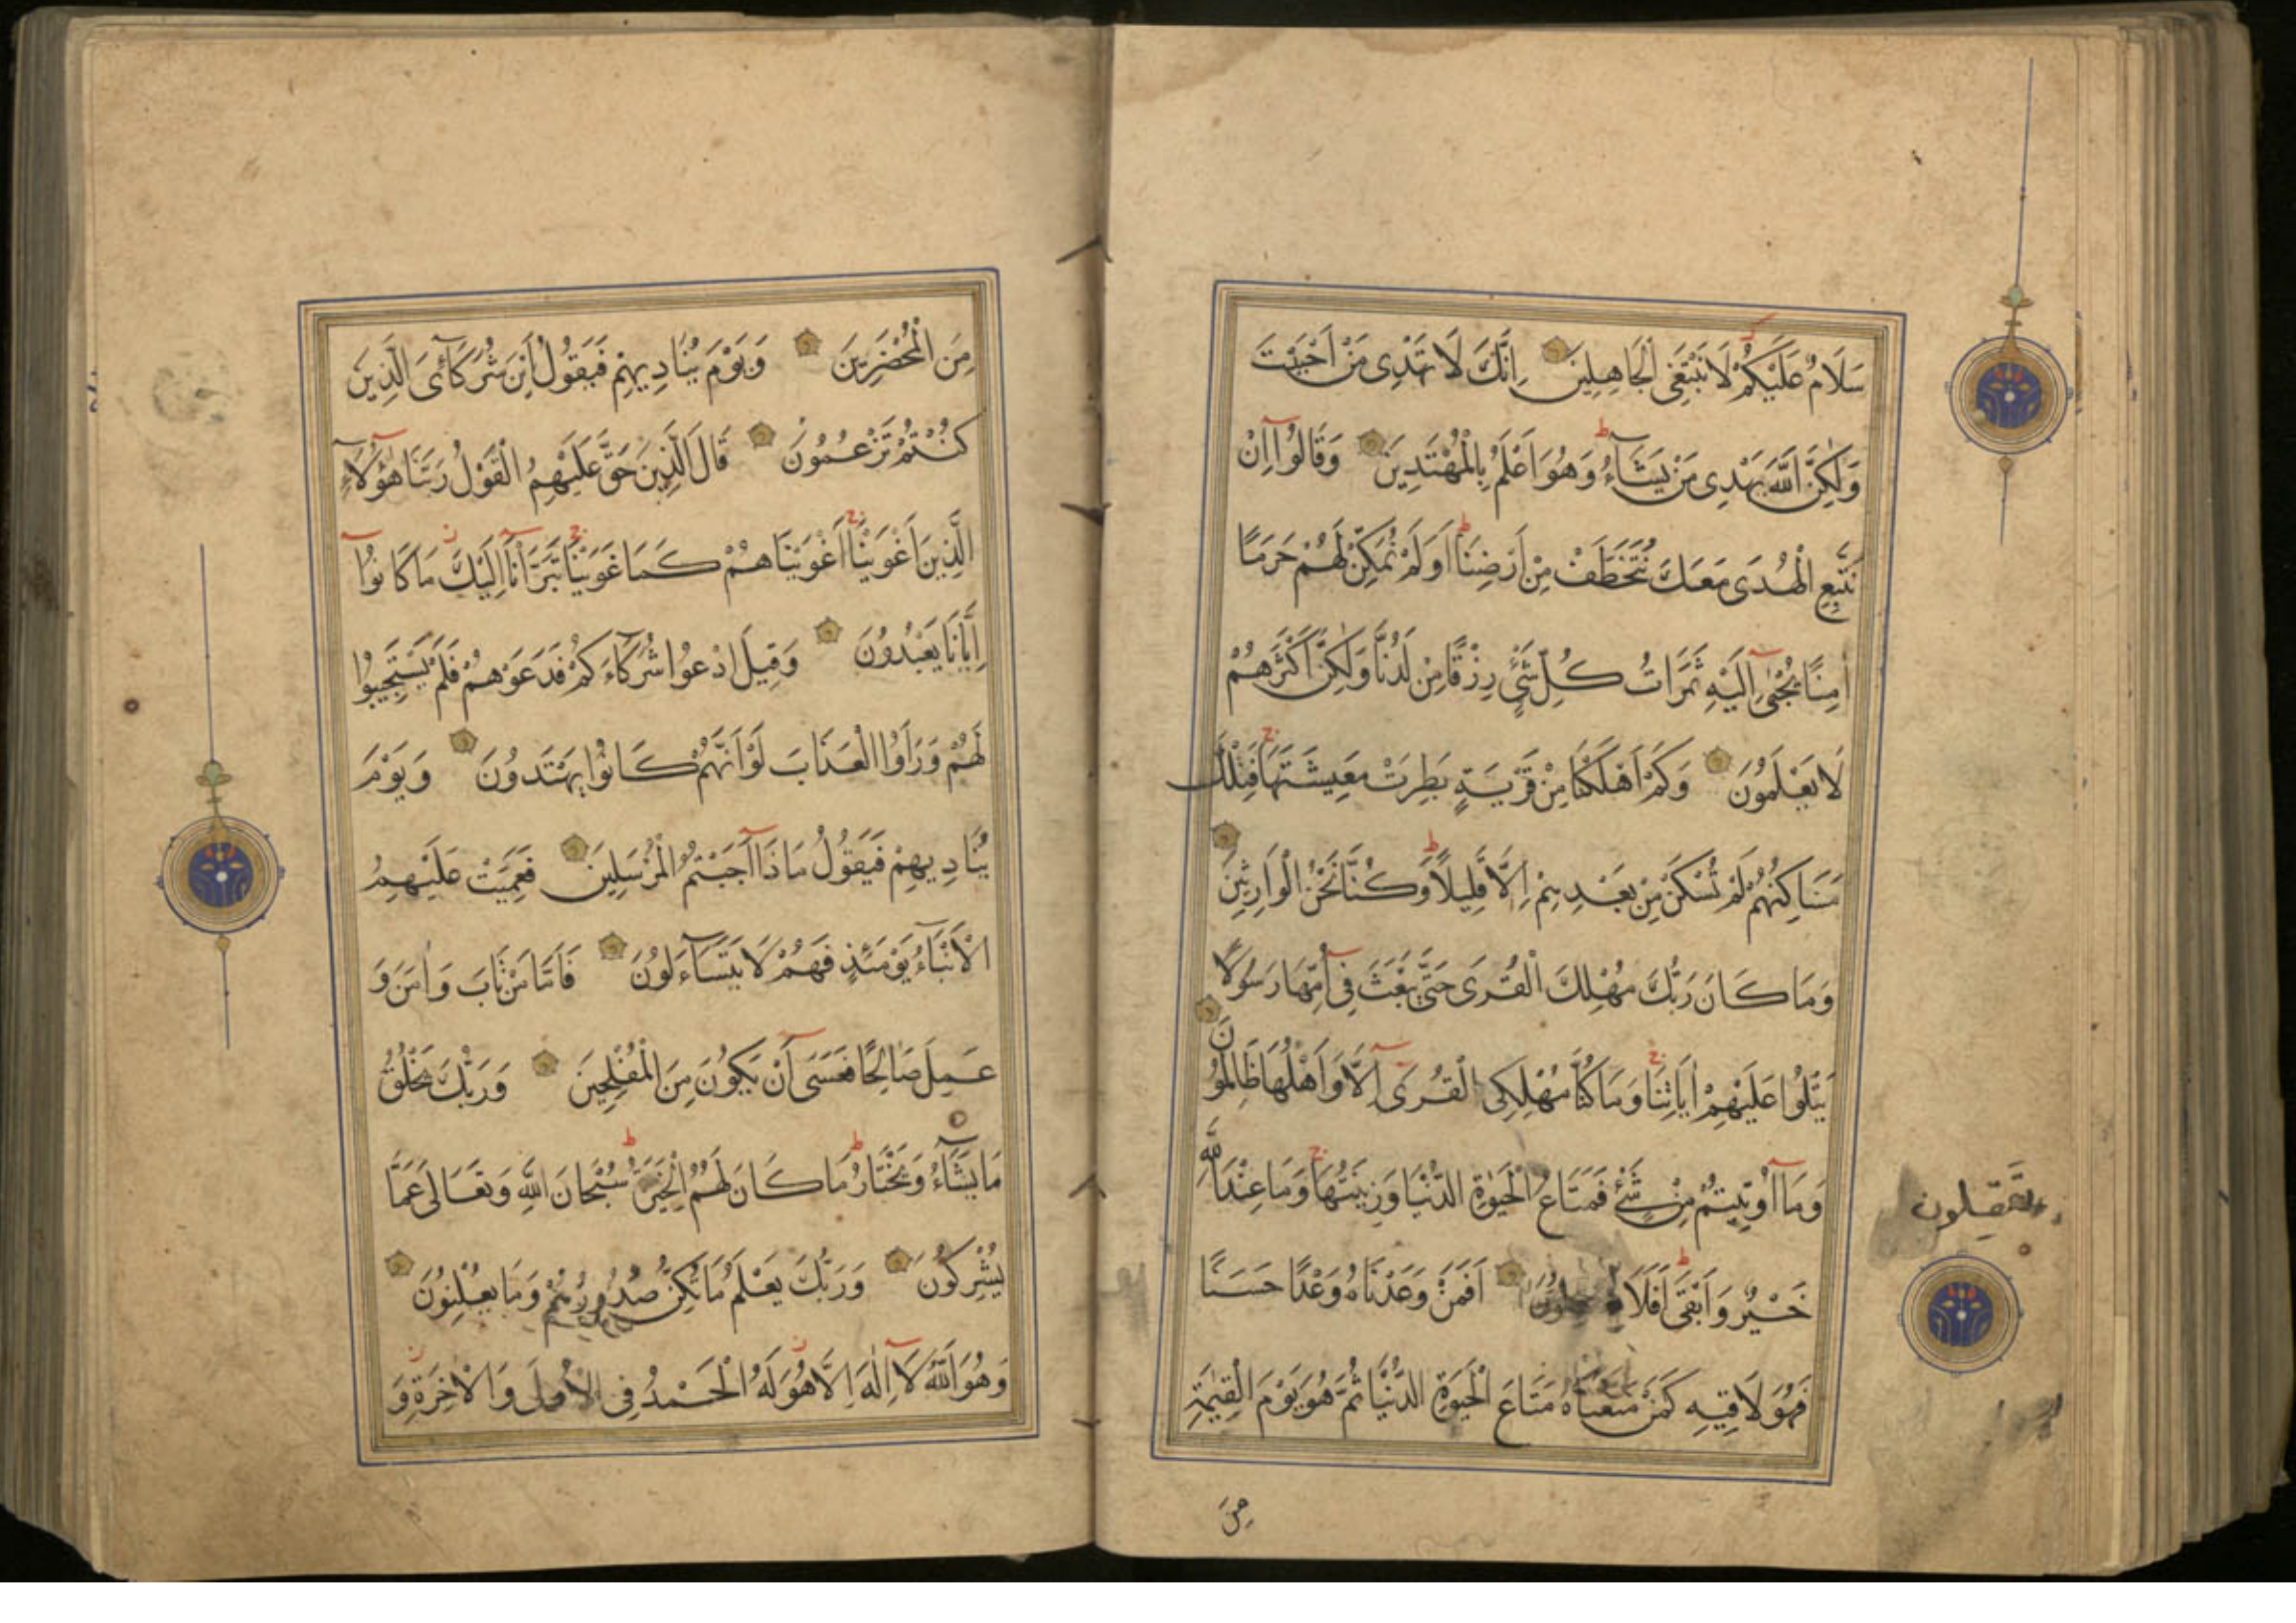 سَلَامٌ عَلَيْكُمْ لَا نَبْتَغِي الْجَاهِلِينَ اِنَّكَ لَا تَهْدِى مَنْ اَحْبَبْتَ
وَلٰكِنَّ اللّٰهَ يَهْدِى مَنْ يَشَآءُ وَهُوَ اَعْلَمُ بِالْمُهْتَدِينَ وَقَالُوٓا اِنْ
نَتَّبِعِ الْهُدَى مَعَكَ نُتَخَطَّفْ مِنْ اَرْضِنَا اَوَلَمْ نُمَكِّنْ لَهُمْ حَرَمًا
اٰمِنًا يُجْبٰىٓ اِلَيْهِ ثَمَرَاتُ كُلِّ شَىْءٍ رِزْقًا مِنْ لَدُنَّا وَلٰكِنَّ اَكْثَرَهُمْ
لَا يَعْلَمُونَ وَكَمْ اَهْلَكْنَا مِنْ قَرْيَةٍ بَطِرَتْ مَعِيشَتَهَا فَتِلْكَ
مَسَاكِنُهُمْ لَمْ تُسْكَنْ مِنْ بَعْدِهِمْ اِلَّا قَلِيلًا وَكُنَّا نَحْنُ الْوَارِثِينَ
وَمَا كَانَ رَبُّكَ مُهْلِكَ الْقُرَى حَتَّى يَبْعَثَ فِىٓ اُمِّهَا رَسُولًا
يَتْلُوا عَلَيْهِمْ اٰيَاتِنَا وَمَا كُنَّا مُهْلِكِى الْقُرَىٓ اِلَّا وَاَهْلُهَا ظَالِمُونَ
وَمَآ اُوتِيتُمْ مِنْ شَىْءٍ فَمَتَاعُ الْحَيٰوةِ الدُّنْيَا وَزِينَتُهَا وَمَا عِنْدَ اللّٰهِ
خَيْرٌ وَاَبْقَى اَفَلَا اَفَمَنْ وَعَدْنَاهُ وَعْدًا حَسَنًا
تعقلون
فَهُوَ لَاقِيهِ كَمَنْ مَتَّعْنَاهُ مَتَاعَ الْحَيٰوةِ الدُّنْيَا ثُمَّ هُوَ يَوْمَ الْقِيٰمَةِ
مِنَ
مِنَ الْمُحْضَرِينَ وَيَوْمَ يُنَادِيهِمْ فَيَقُولُ اَيْنَ شُرَكَآئِىَ الَّذِينَ
كُنْتُمْ تَزْعُمُونَ قَالَ الَّذِينَ حَقَّ عَلَيْهِمُ الْقَوْلُ رَبَّنَا هٰٓؤُلَآءِ
الَّذِينَ اَغْوَيْنَا اَغْوَيْنَاهُمْ كَمَا غَوَيْنَا تَبَرَّاْنَآ اِلَيْكَ مَا كَانُوٓا
اِيَّانَا يَعْبُدُونَ وَقِيلَ ادْعُوا شُرَكَآءَكُمْ فَدَعَوْهُمْ فَلَمْ يَسْتَجِيبُوا
لَهُمْ وَرَاَوُا الْعَذَابَ لَوْ اَنَّهُمْ كَانُوا يَهْتَدُونَ وَيَوْمَ
يُنَادِيهِمْ فَيَقُولُ مَاذَآ اَجَبْتُمُ الْمُرْسَلِينَ فَعَمِيَتْ عَلَيْهِمُ
الْاَنْبَآءُ يَوْمَئِذٍ فَهُمْ لَا يَتَسَآءَلُونَ فَاَمَّا مَنْ تَابَ وَاٰمَنَ وَ
عَمِلَ صَالِحًا فَعَسَىٓ اَنْ يَكُونَ مِنَ الْمُفْلِحِينَ وَرَبُّكَ يَخْلُقُ
مَا يَشَآءُ وَيَخْتَارُ مَا كَانَ لَهُمُ الْخِيَرَةُ سُبْحَانَ اللّٰهِ وَتَعَالَى عَمَّا
يُشْرِكُونَ وَرَبُّكَ يَعْلَمُ مَا تُكِنُّ صُدُورُهُمْ وَمَا يُعْلِنُونَ
وَهُوَ اللّٰهُ لَآ اِلٰهَ اِلَّا هُوَ لَهُ الْحَمْدُ فِى الْاُولَى وَالْاٰخِرَةِ وَ